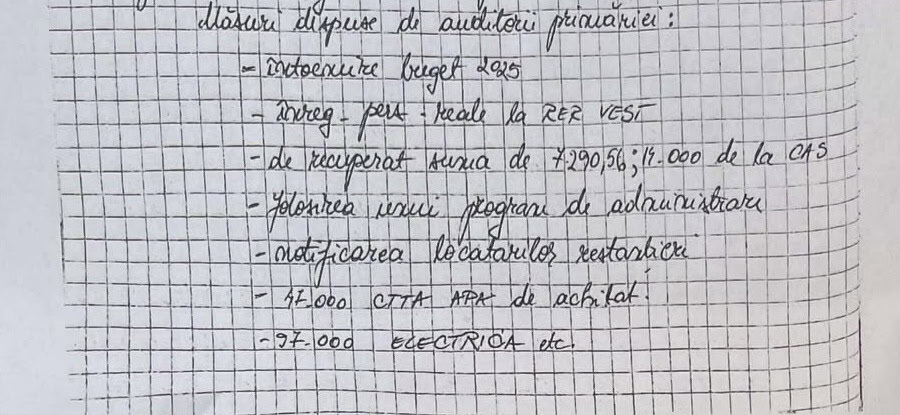 Măsuri dispuse de auditorii primăriei:
- întocmire buget 2025
- înreg. pers. reale la RER VEST
- de recuperat suma de 7.290,56; 14.000 de la CAS
- folosirea unui program de administrare
- notificarea locatarilor restanțieri
- 47.000 CTTA APA de achitat!
- 97.000 ELECTRICA etc.